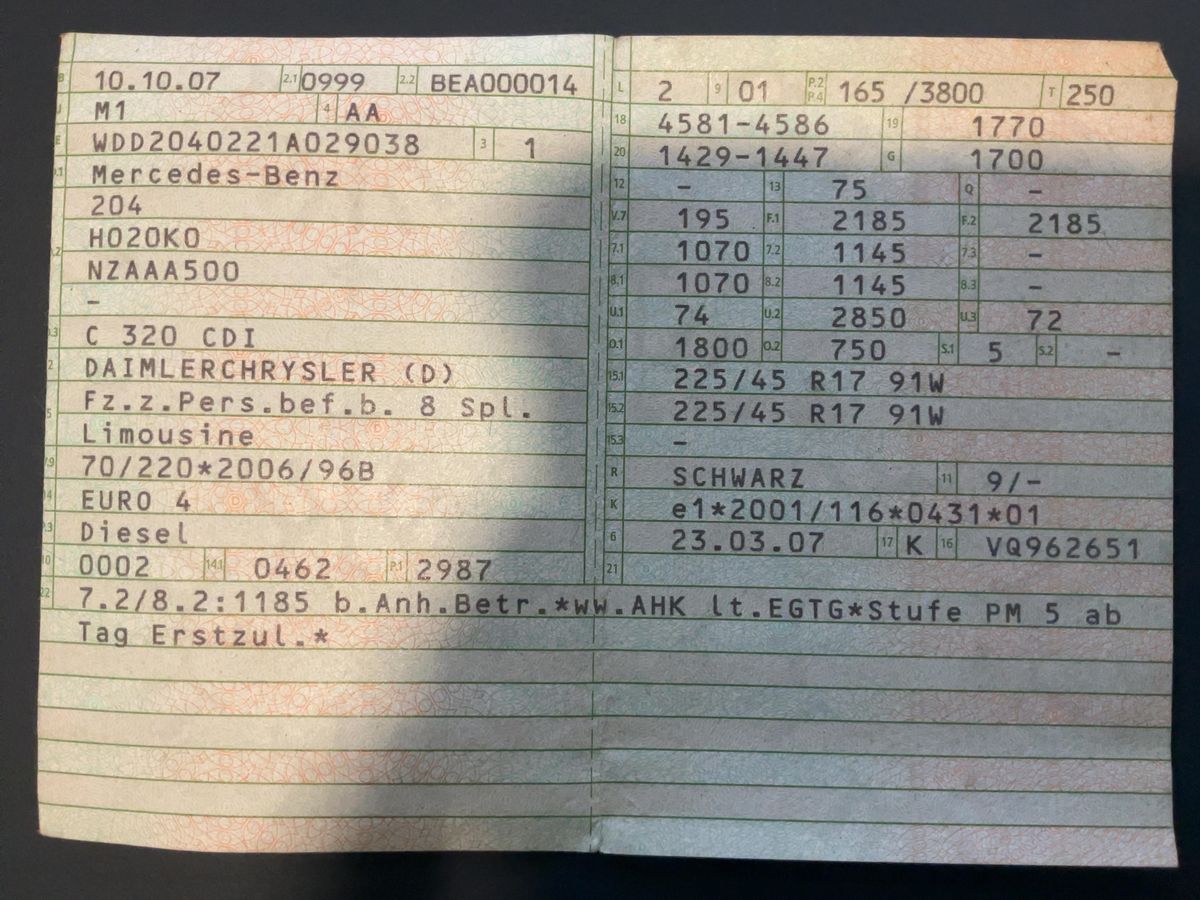 B 10.10.07 2.1 0999 2.2 BEA000014
J M1 4 AA
E WDD2040221A029038 3 1
.1 Mercedes-Benz
204
H020K0
.2 NZAAA500
–
.3 C 320 CDI
2 DAIMLERCHRYSLER (D)
5 Fz.z.Pers.bef.b. 8 Spl.
Limousine
.9 70/220*2006/96B
14 EURO 4
.3 Diesel
10 0002 14.1 0462 P.1 2987
L 2 9 01 P.2 P.4 165 /3800 T 250
18 4581-4586 19 1770
20 1429-1447 G 1700
12 – 13 75 Q –
V.7 195 F.1 2185 F.2 2185
7.1 1070 7.2 1145 7.3 –
8.1 1070 8.2 1145 8.3 –
U.1 74 U.2 2850 U.3 72
O.1 1800 O.2 750 S.1 5 S.2 –
15.1 225/45 R17 91W
15.2 225/45 R17 91W
15.3 –
R SCHWARZ 11 9/–
K e1*2001/116*0431*01
6 23.03.07 17 K 16 VQ962651
21
22 7.2/8.2:1185 b.Anh.Betr.*ww.AHK lt.EGTG*Stufe PM 5 ab
Tag Erstzul.*